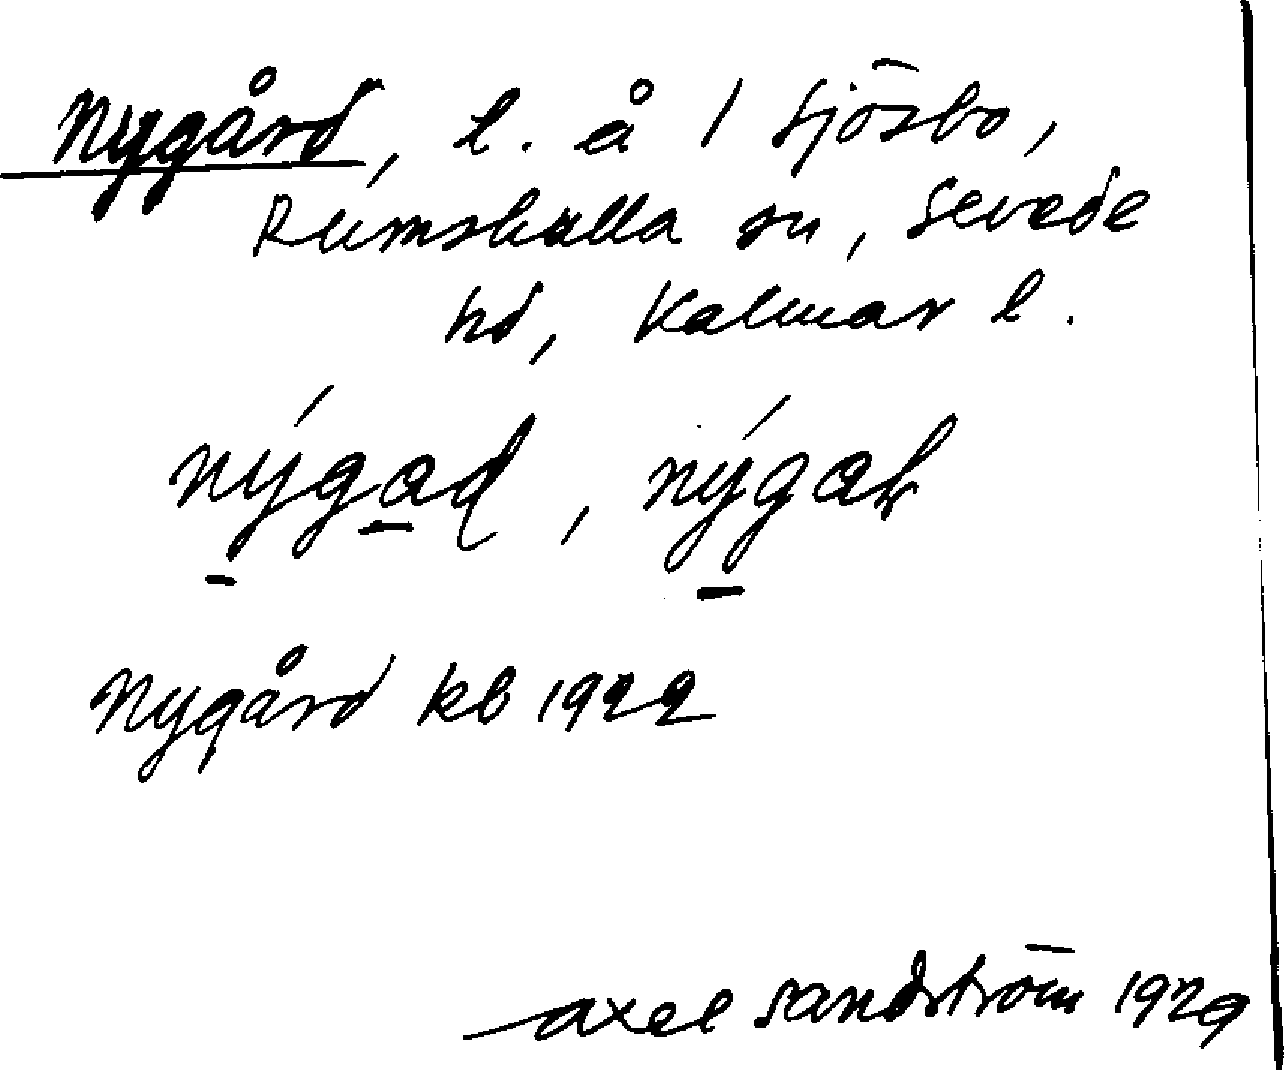 Nygård, l. å 1 Sjösbo,
Rumskulla sn, Sevede
hd, Kalmar l.
nýgad, nýgak
Nygård kb 1922
Axel Sandström 1929